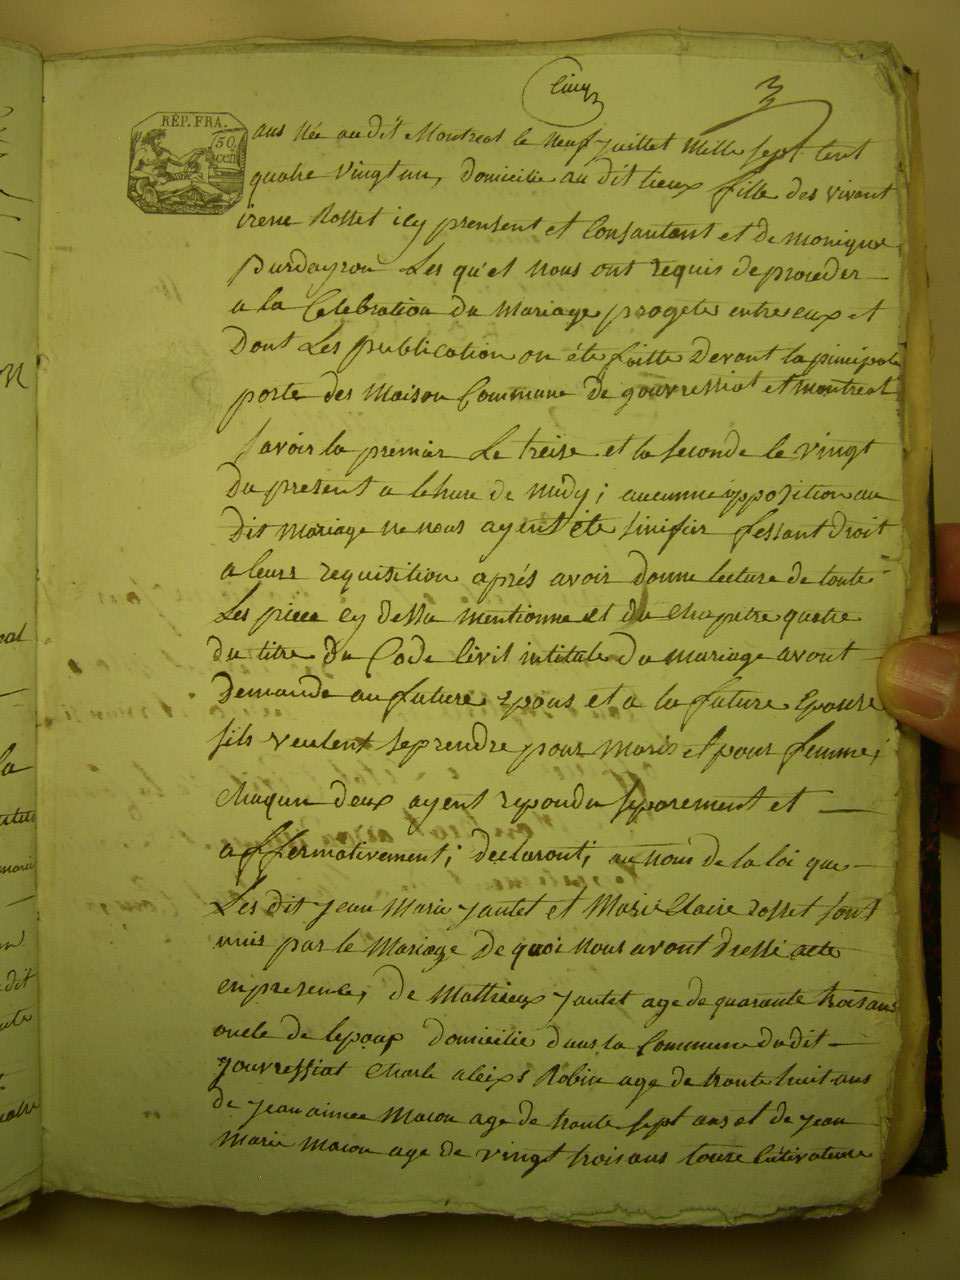 Cinq
3
RÉP. FRA.
50
CEN
ans Née au dit Montreal le neuf juillet Mille sept cent
quatre vingt un, domicilie au dit lieux fille des vivant
irene Rosset icy prensent et Consantant et de monique
Burdayron Les qu'el nous ont requis de proceder
a la Celebration du Mariage progete entre eux et
Dont Les publication on été faitte Devant la principale
porte des Maison Commune de gouvressiat et montreal
savoir la premier Le treise et la seconde le vingt
Du present a lehure de midy; aucunne opposition au
Dit mariage ne nous ayent été sinifiir fessant droit
a leurs requisition aprés avoir donne lecture de toute
Les piece cy dessu mentionne et du chapitre quatre
du titre Du Code Civil intitule Du mariage avont
Demande au future epous et a la future Epouse
sils veulent se prendre pour maris et pour femme;
chaqun deux ayent repondu separement et
affermativement; declaront; au nom de la loi que
Les dit jean Marie jantet et Marie Claire rosset sont
unis par le Mariage De quoi nous avont dressé acte
en presence, de Mathieux jantet age de quarante trois ans
oncle de lepoux domicilie dans la Commune du dit
gouvressiat Charle alexis Robin age de trante huit ans
de jean aimee Macon age de trante sept ans et de jean
marie macon age de vingt trois ans toute Cultivateure